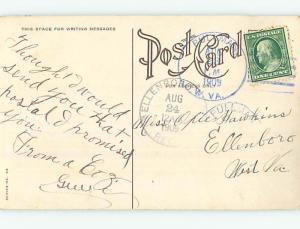 THIS SPACE FOR WRITING MESSAGES
Post Card
Thought I would
send you that
postal I promised
you.
From a Coz
U.S. POSTAGE
ONE CENT
1909
W. VA.
ELLENBORO
AUG
24
1909
Miss Opal Hawkins
Ellenboro
West Va